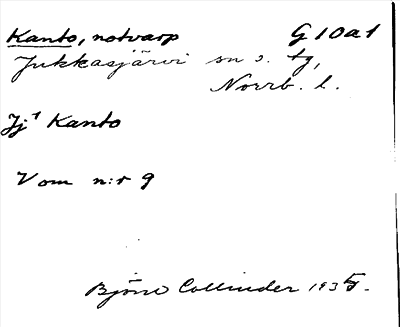 Kanto, notvarp G10a1
Jukkasjärvi sn o. tg,
Norrb. l.
Jj¹ Kanto
V om n:r 9
Björn Collinder 1935.